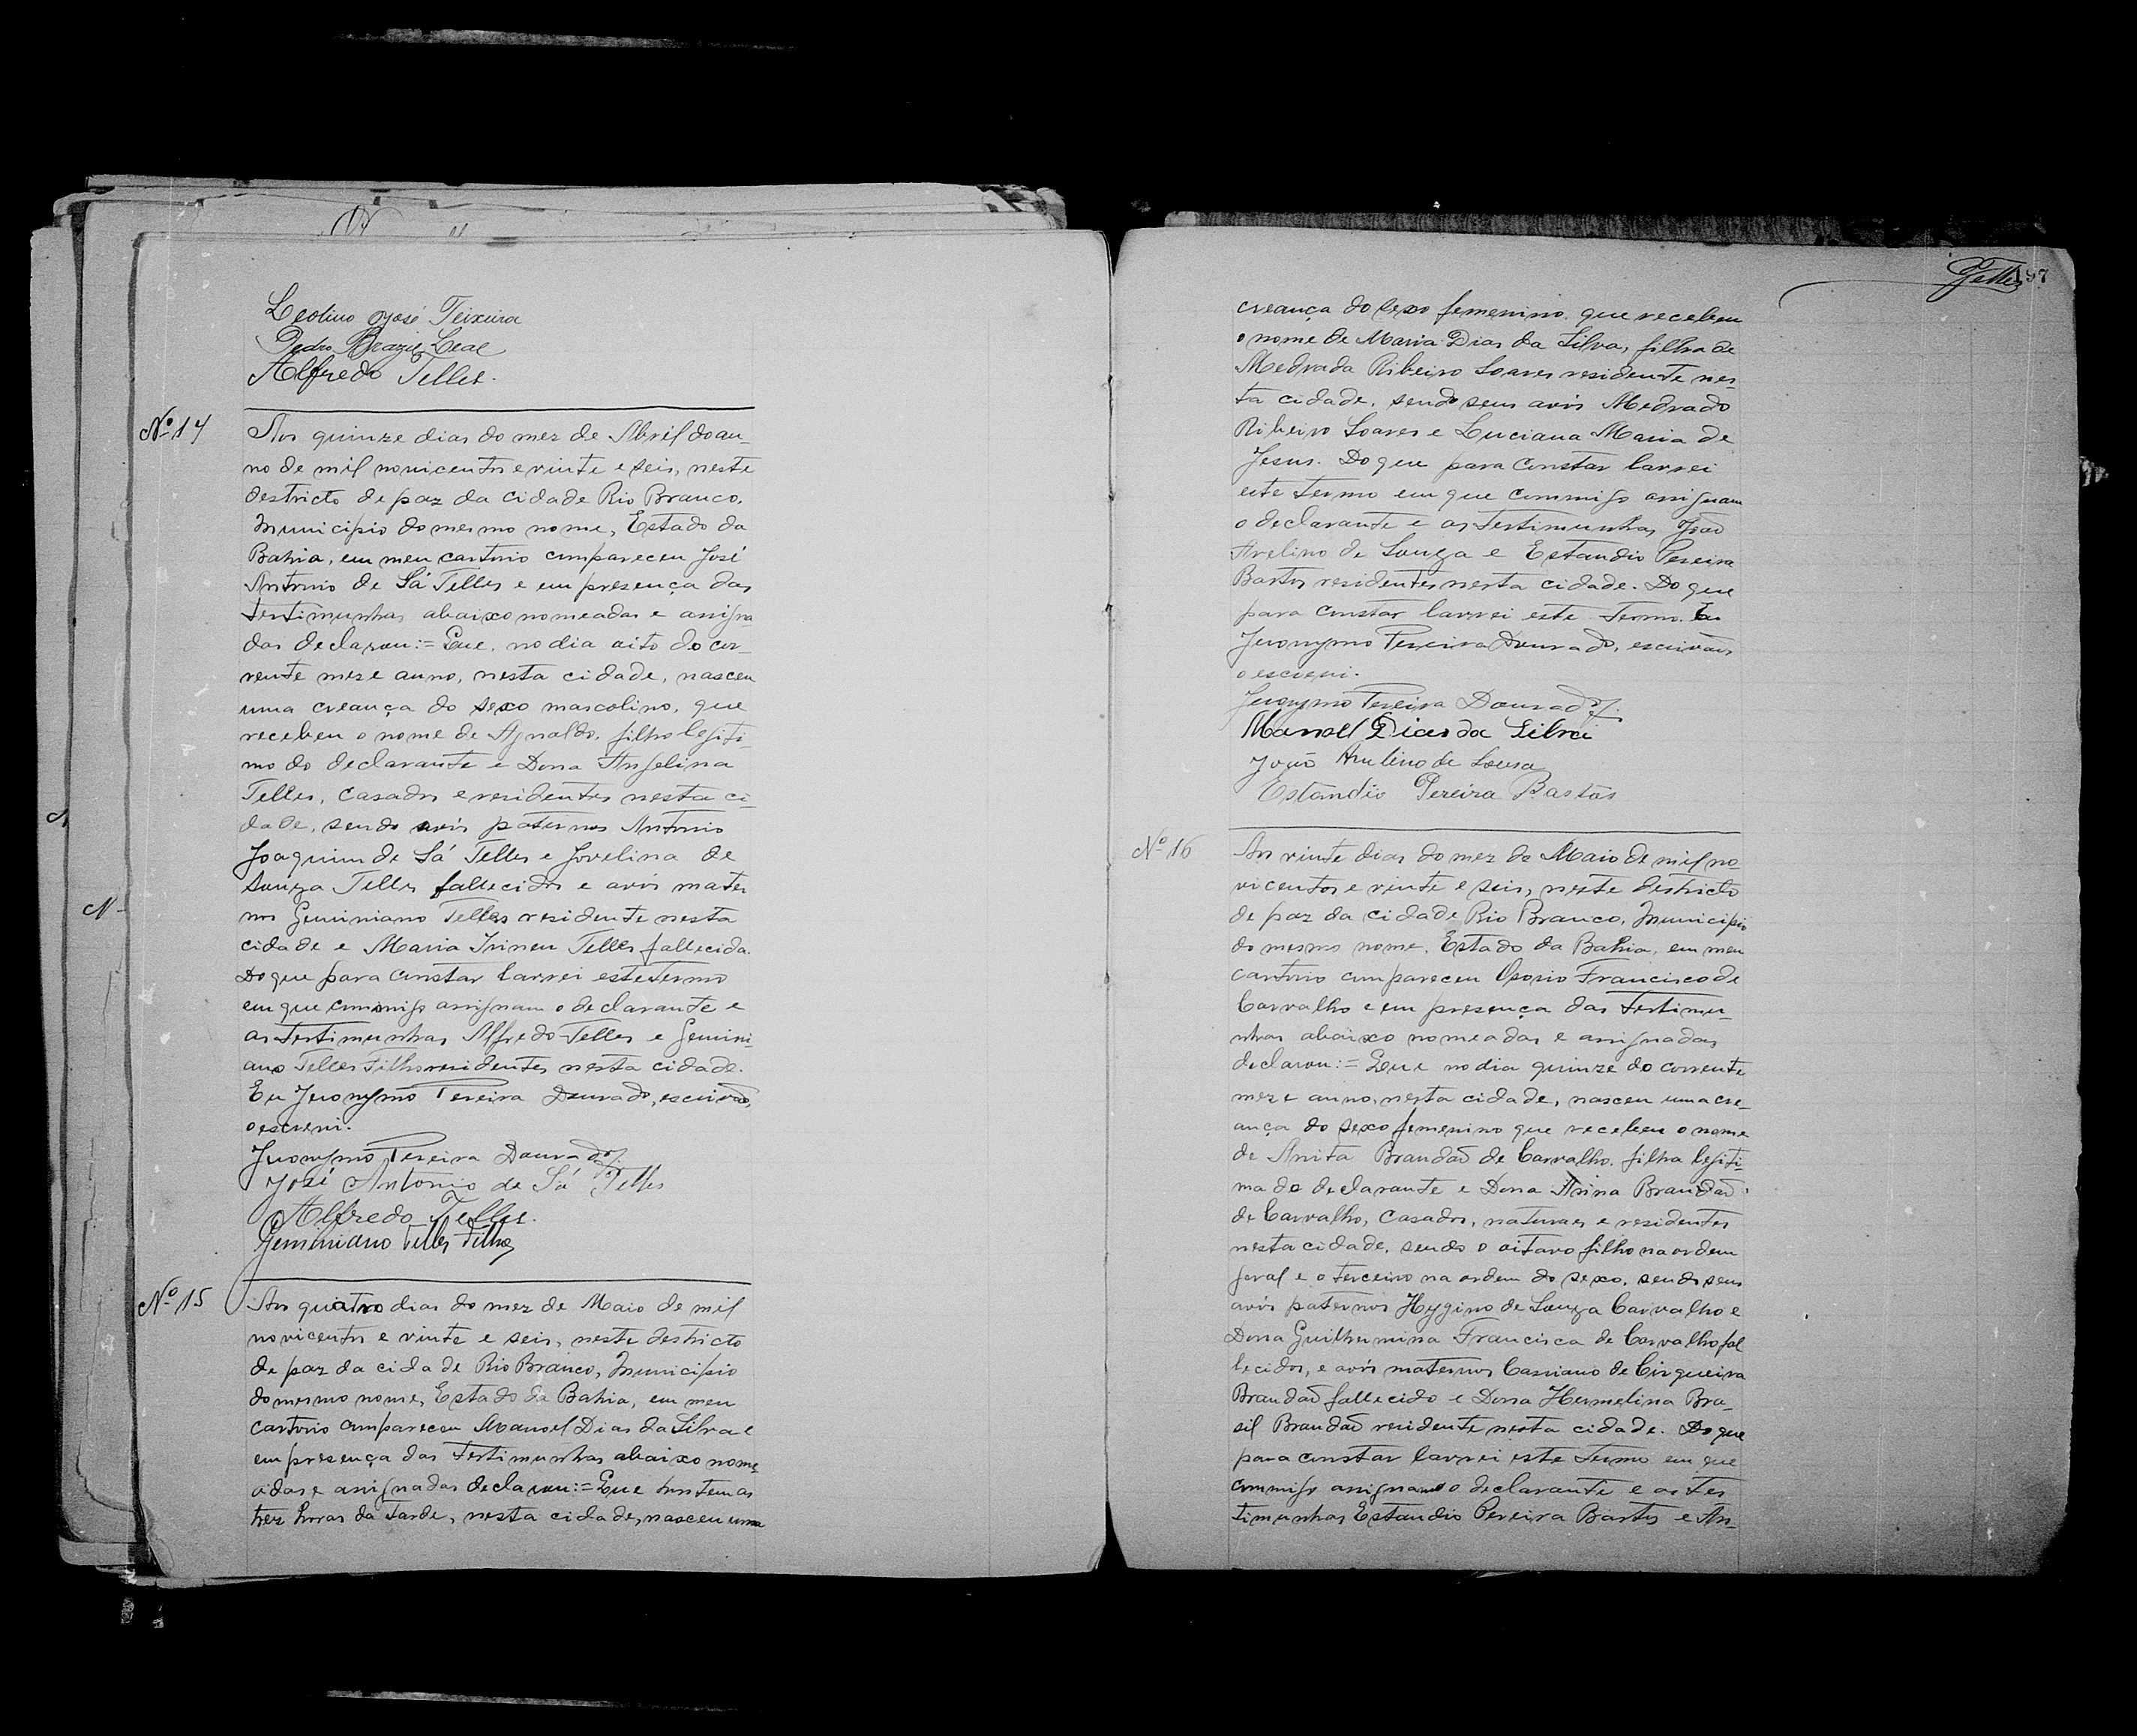 Leolino José Teixeira
Pedro Brazil Leal
Alfredo Telles.
Nº 14
Aos quinze dias do mez de Abril do an-
no de mil novicentos e vinte e seis, neste
destricto de paz da cidade Rio Branco,
Municipio do mesmo nome, Estado da
Bahia, em meu cartorio compareceu José
Antonio de Sá Telles e em presença das
testimunhas abaixo nomeadas e assigna
das declarou:= Que, no dia oito do cor-
rente mez e anno, nesta cidade, nasceu
uma creança do sexo mascolino, que
recebeu o nome de Agnaldo, filho legiti-
mo do declarante e Dona Angelina
Telles, casados e residentes nesta ci-
dade, sendo avós paternos Antonio
Joaquim de Sá Telles e Jovelina de
Souza Telles fallecidos e avós mater
nos Geminiano Telles residente nesta
cidade e Maria Irineu Telles fallecida.
Do que para constar lavrei este termo
em que commigo assignam o declarante e
as testimunhas Alfredo Telles e Gemini-
ano Telles Filho residentes nesta cidade.
Eu Jeronymo Pereira Dourado, escrivão,
o escrevi.
Jeronymo Pereira Dourado
José Antonio de Sá Telles
Alfredo Telles.
Geminiano Telles Filho
Nº 15
Aos quatro dias do mez de Maio de mil
novicentos e vinte e seis, neste destricto
de paz da cidade Rio Branco, Municipio
do mesmo nome, Estado da Bahia, em meu
cartorio compareceu Manoel Dias da Silva e
em presença das testimunhas abaixo nome-
adas e assignadas declarou:= Que hontem as
trez horas da tarde, nesta cidade, nasceu uma
Telles 197
creança do sexo femenino que recebeu
o nome de Maria Dias da Silva, filha de
Medrada Ribeiro Soares residente nes-
ta cidade, sendo seus avós Medrado
Ribeiro Soares e Luciana Maria de
Jesus. Do que para constar lavrei
este termo em que commigo assignam
o declarante e as testimunhas João
Avelino de Souza e Estandio Pereira
Bastos residentes nesta cidade. Do que
para constar lavrei este termo. Eu
Jeronymo Pereira Dourado, escrivão,
o escrevi.
Jeronymo Pereira Dourado
Manoel Dias da Silva
João Avelino de Sousa
Estandio Pereira Bastos
Nº 16
Aos vinte dias do mez de Maio de mil no-
vicentos e vinte e seis, neste destricto
de paz da cidade Rio Branco, Municipio
do mesmo nome, Estado da Bahia, em meu
cartorio compareceu Osorio Francisco de
Carvalho e em presença das testimu-
nhas abaixo nomeadas e assignadas
declarou:= Que no dia quinze do corrente
mez e anno, nesta cidade, nasceu uma cre-
ança do sexo femenino que recebeu o nome
de Anita Brandão de Carvalho, filha legiti-
ma do declarante e Dona Anna Brandão
de Carvalho, casados, naturaes e residentes
nesta cidade, sendo o oitavo filho na ordem
geral e o terceiro na ordem do sexo, sendo seus
avós paternos Hygino de Souza Carvalho e
Dona Guilhermina Francisca de Carvalho fal
lecidos, e avós maternos Cassiano de Cirqueira
Brandão fallecido e Dona Hermelina Bra-
sil Brandão residente nesta cidade. Do que
para constar lavrei este termo em que
commigo assignam o declarante e as tes
timunhas Estandio Pereira Bastos e An-